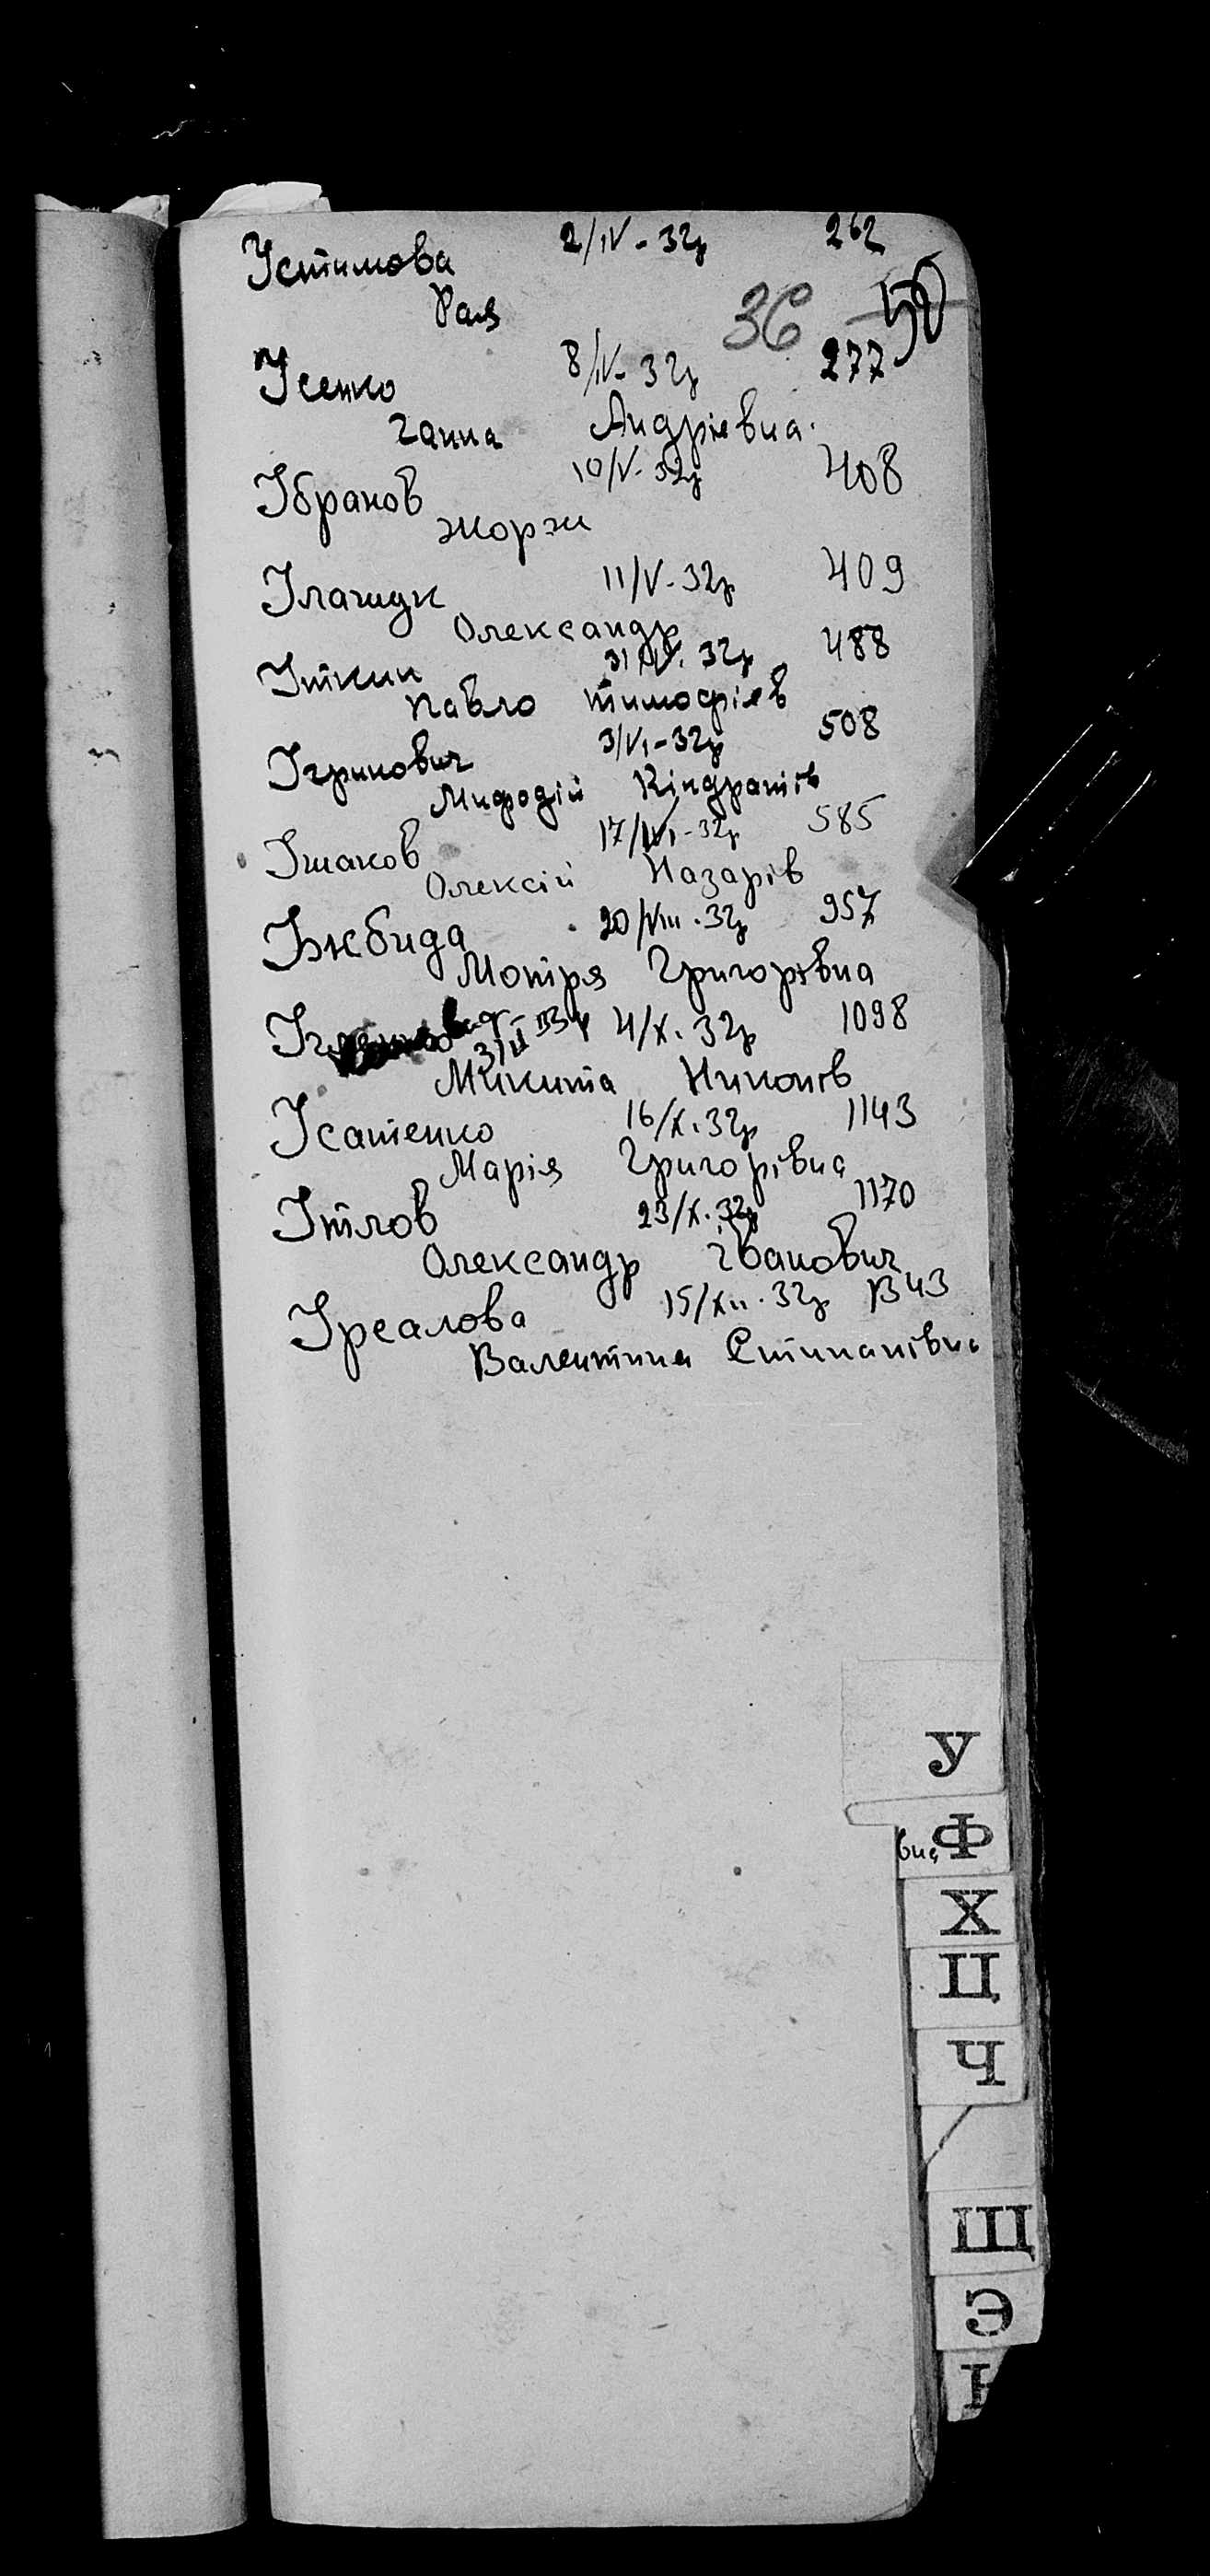 Устимова 2/IV-32р 262
Рая 36 50
Ісенко 8/IV-32р 277
Ганна Андріевна.
Ібранов 10/V-32р 408
Жорж
11/V-32р 409
Олександр
Іткин 31/V. 32р 488
Павло Тимофіїв
Ігринович 3/VI-32р 508
Мифодій Кіндратів
Ішаков 17/VI-32р 585
Олексій Назарів
20/VIII.32р 957
Мотря Григорівна
4/X.32р 1098
Микита Никонів
Ісатенко 16/X.32р 1143
Марія Григорівна
Ітлов 23/X.32р 1170
Олександр Іванович
Іреалова 15/XII.32р 1343
Валентина Стипанівна
У
вна Ф
Х
Ц
Ч
Щ
Э